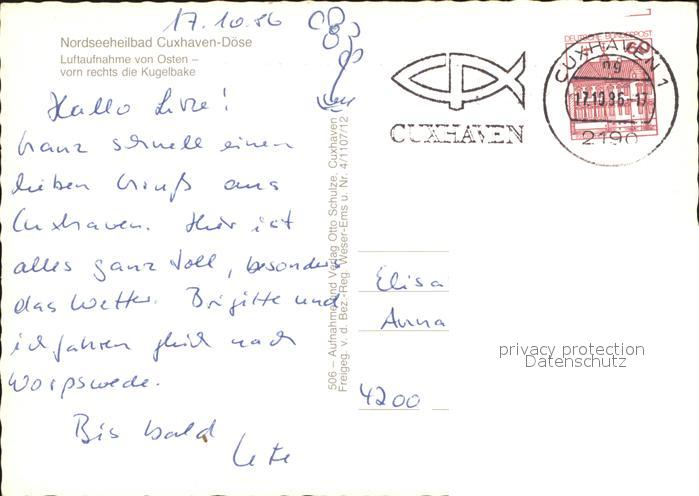 17.10.86
Nordseeheilbad Cuxhaven-Döse
Luftaufnahme von Osten –
vorn rechts die Kugelbake
Hallo
Ganz schnell einen
lieben Gruß aus
Cuxhaven. Hier ist
alles ganz toll, besonders
das Wetter. Brigitte und
ich fahren gleich nach
Worpswede.
Bis bald
Ute
506 – Aufnahme und Verlag Otto Schulze, Cuxhaven
Freigeg. v. d. Bez.-Reg. Weser-Ems u. Nr. 4/1107/12
CUXHAVEN
DEUTSCHE BUNDESPOST
60
CUXHAVEN 1
ng
17.10.86-17
2190
Elisa
Anna
4200
privacy protection
Datenschutz